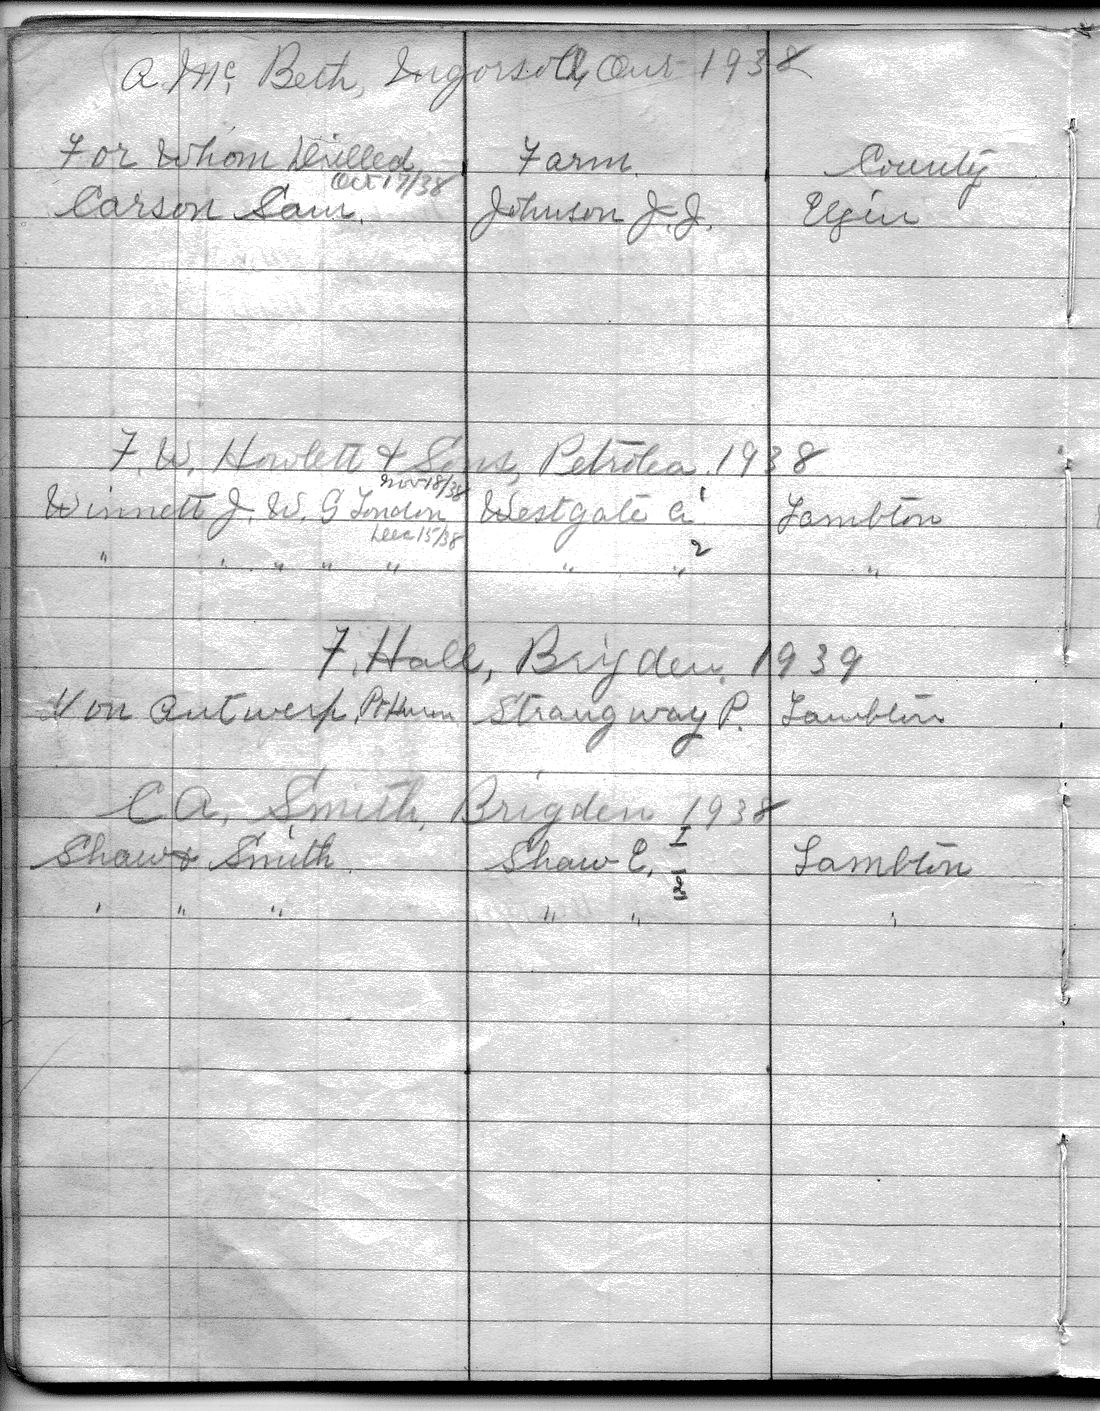 A. Mc. Beth, Ingersoll, Ont 1938
For Whom Drilled Farm. County
Oct 17/38
Carson Sam. Johnson J. J. Elgin
F. W. Howlett & Sons, Petrolea. 1938
Nov 18/38
Winnett J. W. G London Westgate A. 1 Lambton
Dec 15/38 2
" " " " " " " "
F. Hall, Brigden. 1939
Von Antwerp, Pt Huron Strangway P. Lambton
C A. Smith, Brigden 1938
Shaw & Smith. Shaw E. 1 Lambton
2
" " " " " "